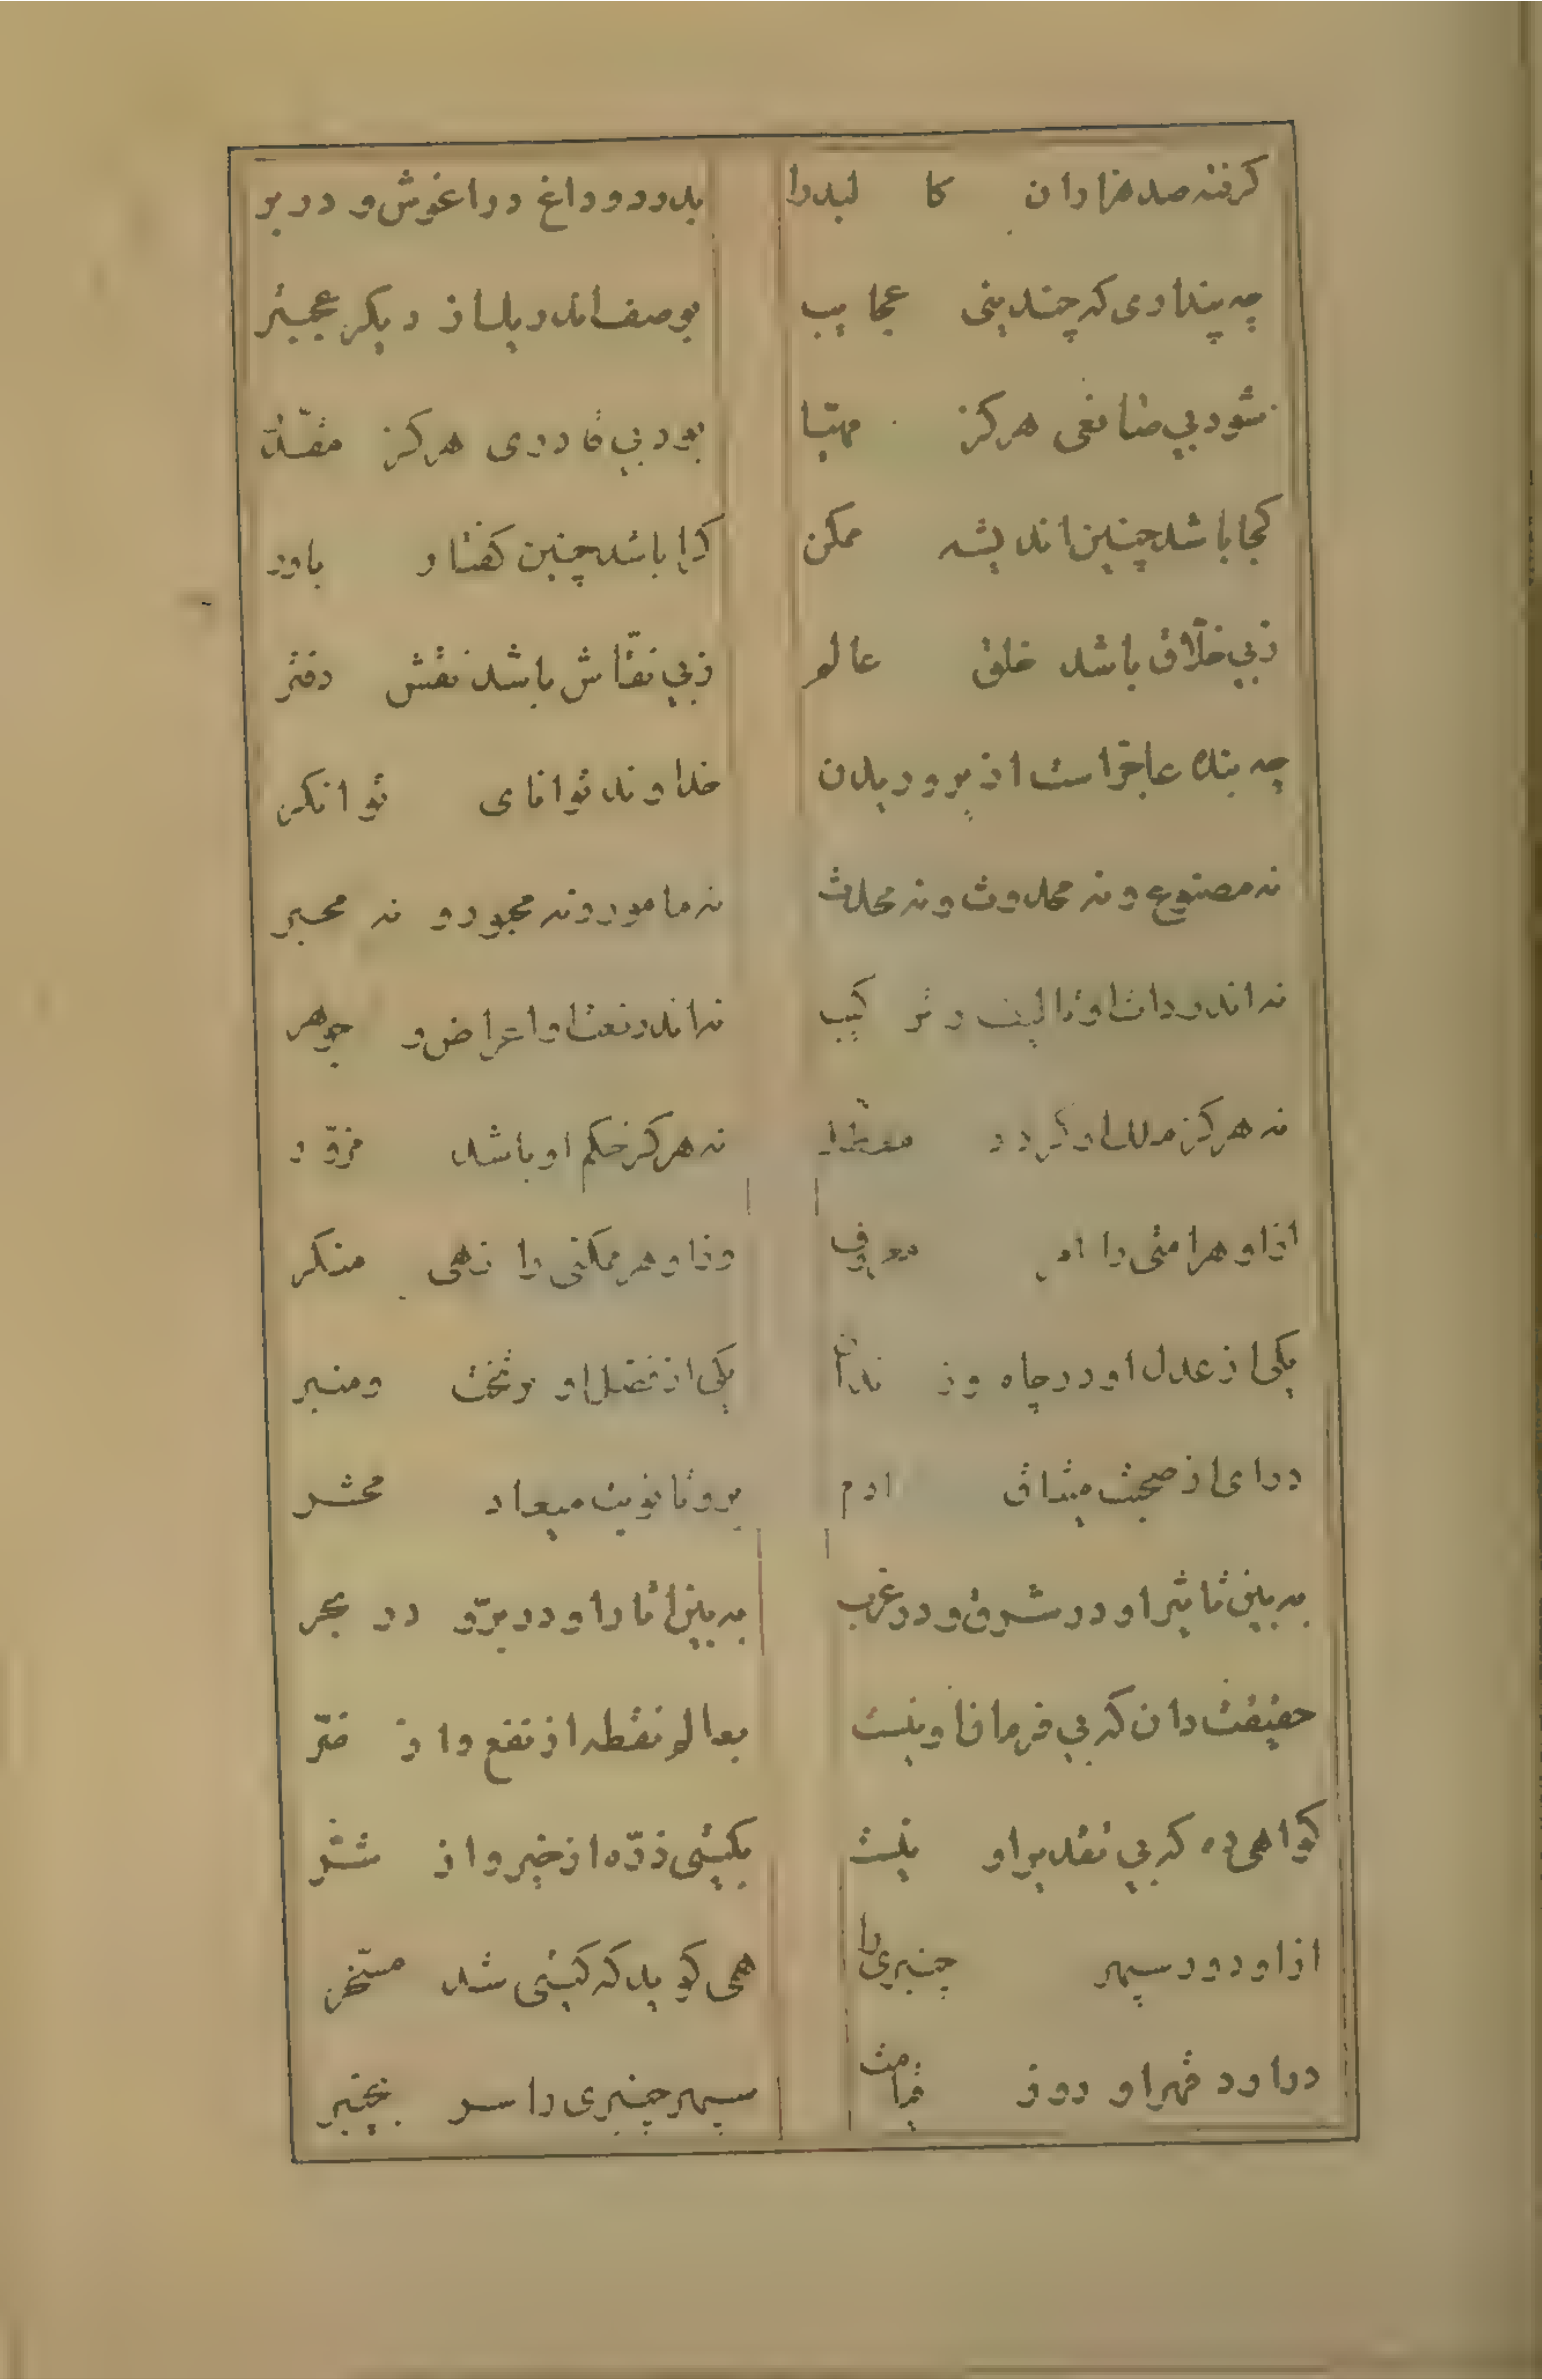 کرفته صد هزاران کا لبد را بدرد و داغ در اغوش و در بر
چه پنداری که چندینی عجایب بوصف اندر یک از دیکر عجیبتر
شود بی صانعی هرکز مهیّا بود بی قادری هرکز مقدّر
کجا باشد چنین اندیشه ممکن کرا باشد چنین کفتار باور
ز بی خلّاق باشد خلق عالم ز بی نقّاش باشد نقش دفتر
چه بنده عاجز است از پروریدن خداوند توانای توانکر
نه مصنوع و نه محدوث و نه محدث نه مامور و نه مجبور و نه مخبر
نه اندر ذات او تالیف و ترکیب نه اندر نعت او اعراض و جوهر
نه هرکز ملک او کردد نه هرکز حکم او باشد مزوّر
از او هر امتی را امر معروف وز او هر ممکنی را نهی منکر
یکی از عدل او در چاه و زندان یکی از فضل او بر تخت و منبر
درای از صحبت میثاق ادم برو تا نوبت میعاد محشر
به بین تاثیر او در شرق و در غرب به بین اثار او در برّ و در بحر
حقیقت دان که بی فرمان او نیست بعالم نقطه از نفع و از ضرّ
کواهی ده که بی تقدیر او نیست بکیتی ذرّه از خیر و از شر
از او دور سپهر چنبری را همی کوید که کیتی شد مسخّر
دراورد قهر او روز قیامت سپهر چنبری را سر بچنبر